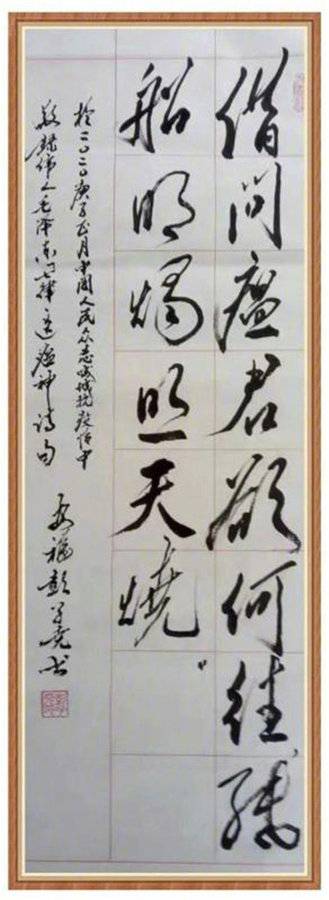 借问瘟君欲何往纸
船明烛照天燒
於二〇二〇庚子正月中國人民众志成城抗疫情中
敬録伟人毛泽东七律送瘟神诗句
安福彭书